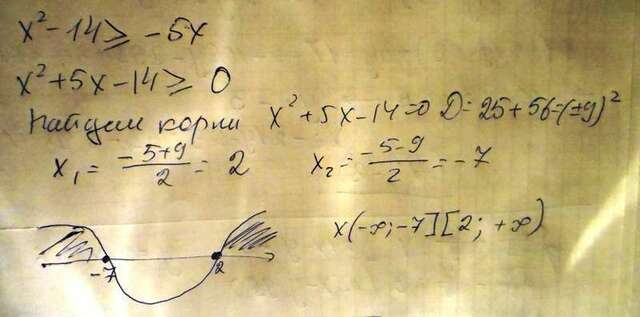 x² - 14 ≥ -5x
x² + 5x - 14 ≥ 0
Найдем корни x² + 5x - 14 = 0 D = 25 + 56 = (±9)²
x₁ = (-5+9)/2 = 2 x₂ = (-5-9)/2 = -7
x(-∞; -7][2; +∞)
-7 2